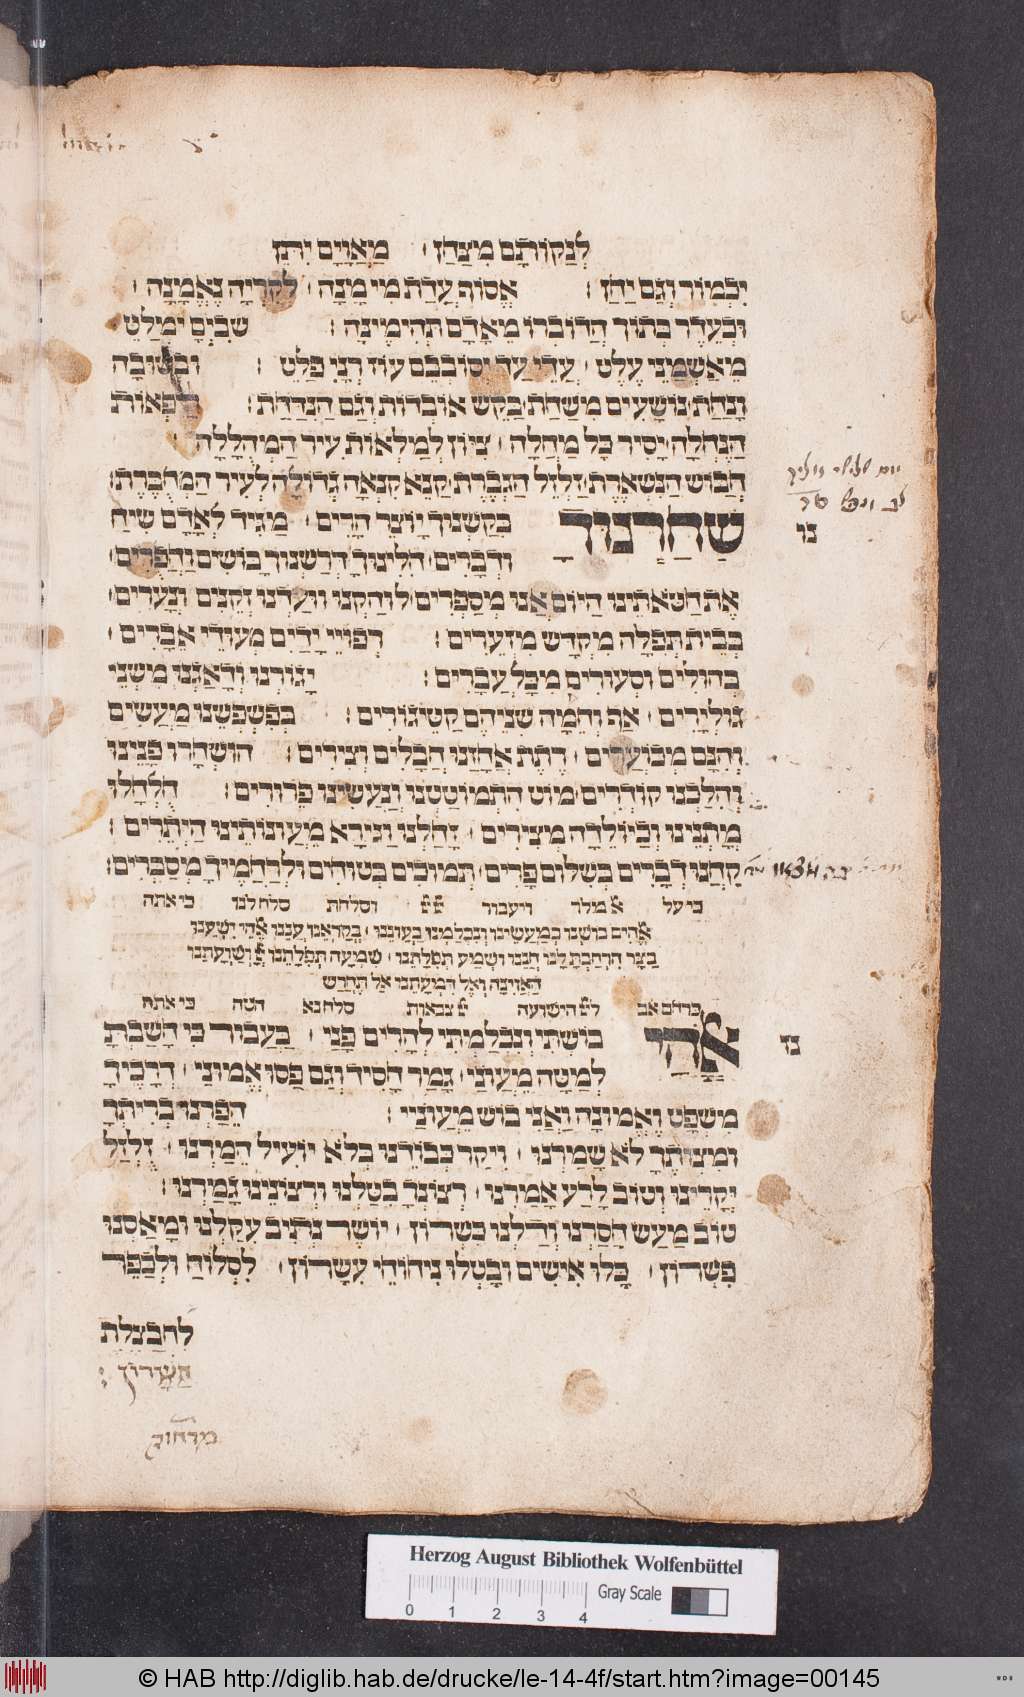 לְנַקּוֹתָם מִצַּחַן׃ מֵאַוָּיִם יִתֵּן
יִכְמוֹר וְגַם יַחַן׃ אֱסוֹף עֲדַת מִי מָנָה׃ לְקִרְיָה נֶאֱמָנָה׃
וּבְעֵדֶר כְּתוֹךְ הַדּוֹבְרוֹ מֵאָדָם תְּהִימֶינָה׃ שְׁבִים יְמַלֵּט
עֲדֵי עַד יְסוֹבְבֵם עוֹז רָנֵּי פַלֵּט׃ וּבְשׁוּבָה
וָנַחַת נוֹשָׁעִים מִשַּׁחַת בַּקֵּשׁ אוֹבְדוֹת וְגַם הַנִּדַּחַת׃
הַנַּחֲלָה יָסִיר כָּל מַחֲלָה׃ צִיּוֹן לְמַלְאוֹת עִיר הַמְהֻלָּלָה
חֲבוֹשׁ הַנִּשְׁאֶרֶת זִלְזוּל הַגְּבֶרֶת קַנֵּא קִנְאָה גְדוֹלָה לְעִיר הַמְחֻבֶּרֶת׃
שַׁחַרְנוּךָ בַּקַּשְׁנוּךָ יוֹצֵר הָרִים׃ מַגִּיד לְאָדָם שִׂיחַ
נו
וּדְבָרִים׃ דְּרַשְׁנוּךָ בּוֹשִׁים וַחֲפֵרִים׃
אֶת חַטֹּאתֵינוּ הַיּוֹם אָנוּ מְסַפְּרִים׃ וְנוֹעַדְנוּ זְקֵנִים וּנְעָרִים׃
בְּבֵית תְּפִלָּה מִקְדָּשׁ מִזְעָרִים׃ רְפוּיֵי יָדַיִם מְעוּדֵי אֲבָרִים׃
בְּהוּלִים וּסְעוּרִים מִכָּל עֲבָרִים׃ יָגוֹרְנוּ וְדָאַגְנוּ מִשְּׁנֵי
אַף וְחֵמָה שְׁנֵיהֶם קַטֵּיגוֹרִים׃ בְּפִשְׁפְּשֵׁנוּ מַעֲשִׂים
וְהִנָּם מְכוֹעָרִים׃ רֶתֶת אֲחָזַנוּ חֲבָלִים וְצִירִים׃ הוּשְׁחֲרוּ פָנֵינוּ
וְהָלַכְנוּ קוֹדְרִים׃ מוֹט הִתְמוֹטַטְנוּ וְנַעֲשֵׂינוּ פְרוּרִים׃ חֻלְחֲלוּ
מָתְנֵינוּ וּכְיוֹלֵדָה מְצִירִים׃ זָחַלְנוּ וְנִירָא מֵעֲוֹנוֹתֵינוּ הַיְתֵרִים׃
קַחְנוּ דְבָרִים בְּשִׁלּוּם פָּרִים׃ תְּמוּכִים בְּטוּחִים וּלְרַחֲמֶיךָ מְסַבְּרִים׃
כי על א מולך ויעבור וסלחת סלח לנו כי אתה
אֱהִים בּוֹשְׁנוּ בְמַעֲשֵׂינוּ וְנִכְלַמְנוּ בַּעֲוֹנֵנוּ׃ בְּקָרְאֵנוּ עֲנֵנוּ אֱהֵי יִשְׁעֵנוּ
בַּצָּר הִרְחַבְתָּ לָּנוּ חָנֵּנוּ וּשְׁמַע תְּפִלָּתֵנוּ׃ שִׁמְעָה תְפִלָּתֵנוּ וְשַׁוְעָתֵנוּ
הַאֲזִינָה וְאֶל דִּמְעָתֵנוּ אַל תֶּחֱרַשׁ
כרחם אב לי הישועה צבאות סלח נא הטה כי אתה
אֱהַי בּוֹשְׁתִּי וְנִכְלַמְתִּי לְהָרִים פָּנַי׃ בַּעֲבוּר כִּי הֶשַׁבְתָּ
נז
לְמַטָּה מֵעֲוֹנַי׃ גָּמַר חָסִיד וְגַם פַּסּוּ אֱמוּנַי׃ דְּרָכֶיךָ
מִשְׁפָּט וֶאֱמוּנָה וַאֲנִי בוֹשׁ מֵעֲוֹנָיי׃ הֵפַרְנוּ בְרִיתְךָ
וּמִצְוֹתֶיךָ לֹא שָׁמַרְנוּ׃ וִיקַר כְּבוֹדֵנוּ בְּלֹא יוֹעִיל הֵמַרְנוּ׃ זִלְזַל
יְקָרֵינוּ וְטוֹב לָרַע אָמַרְנוּ׃ רְצוֹנְךָ בִּטַּלְנוּ וּרְצוֹנֵינוּ גָּמַרְנוּ׃
טוֹב מַעַשׂ חָסַרְנוּ וְדַלְנוּ כִשְׁרוֹן׃ יוֹשֶׁר נְתִיב עִקַּלְנוּ וּמָאַסְנוּ
פִּשְׁרוֹן׃ כָּלוּ אִישִׁים וּבָטְלוּ נִיחוֹחֵי עִשָּׂרוֹן׃ לִסְלוֹחַ וּלְכַפֵּר
לַחֲבַצֶּלֶת
הַשָּׁרוֹן׃
Herzog August Bibliothek Wolfenbüttel
Gray Scale
0 1 2 3 4
© HAB http://diglib.hab.de/drucke/le-14-4f/start.htm?image=00145